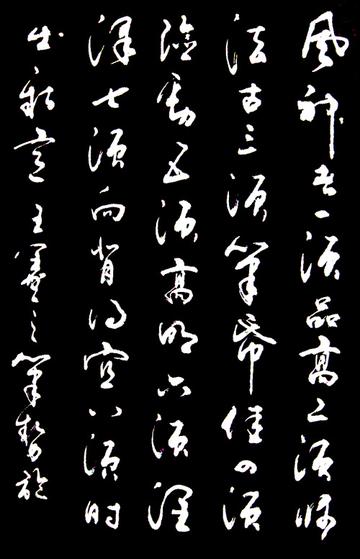 風神者一須品高二須師
法古三須筆帋佳四須
險勁五須高明六須潤
澤七須向背得宜八須時
出新意王羲之筆勢